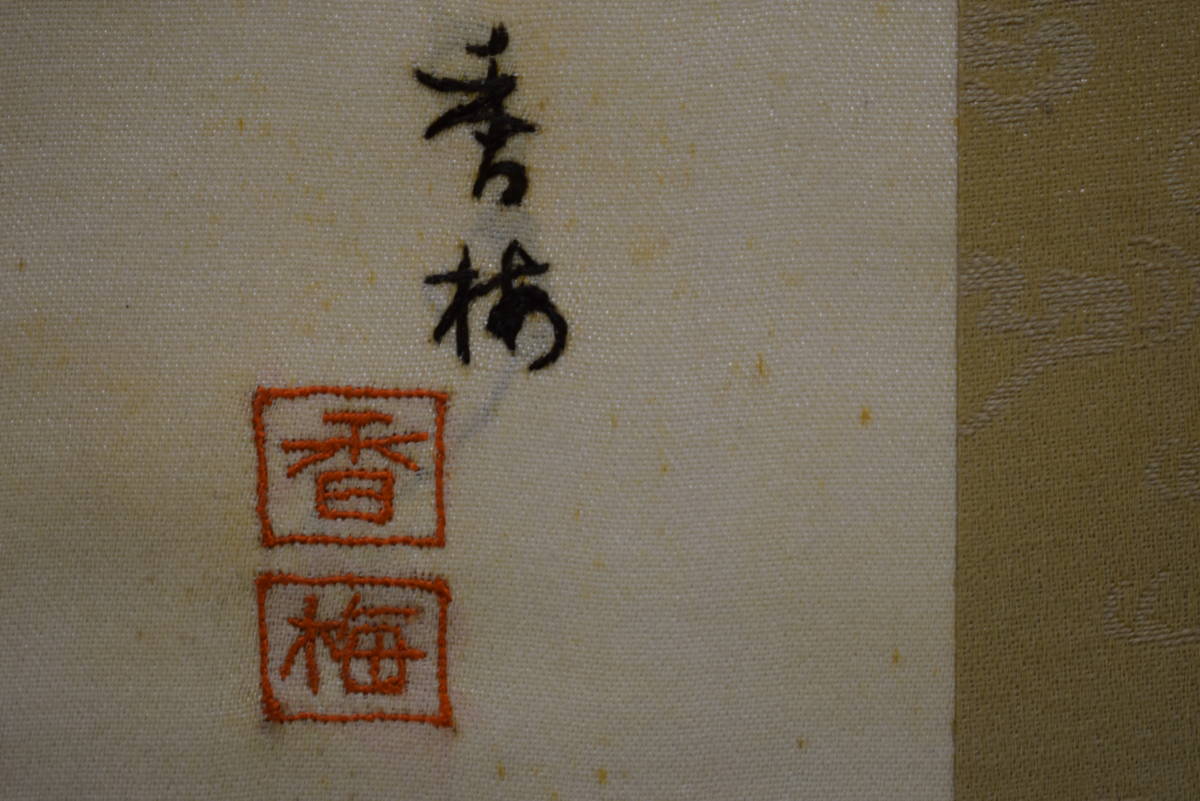 香梅
香
梅